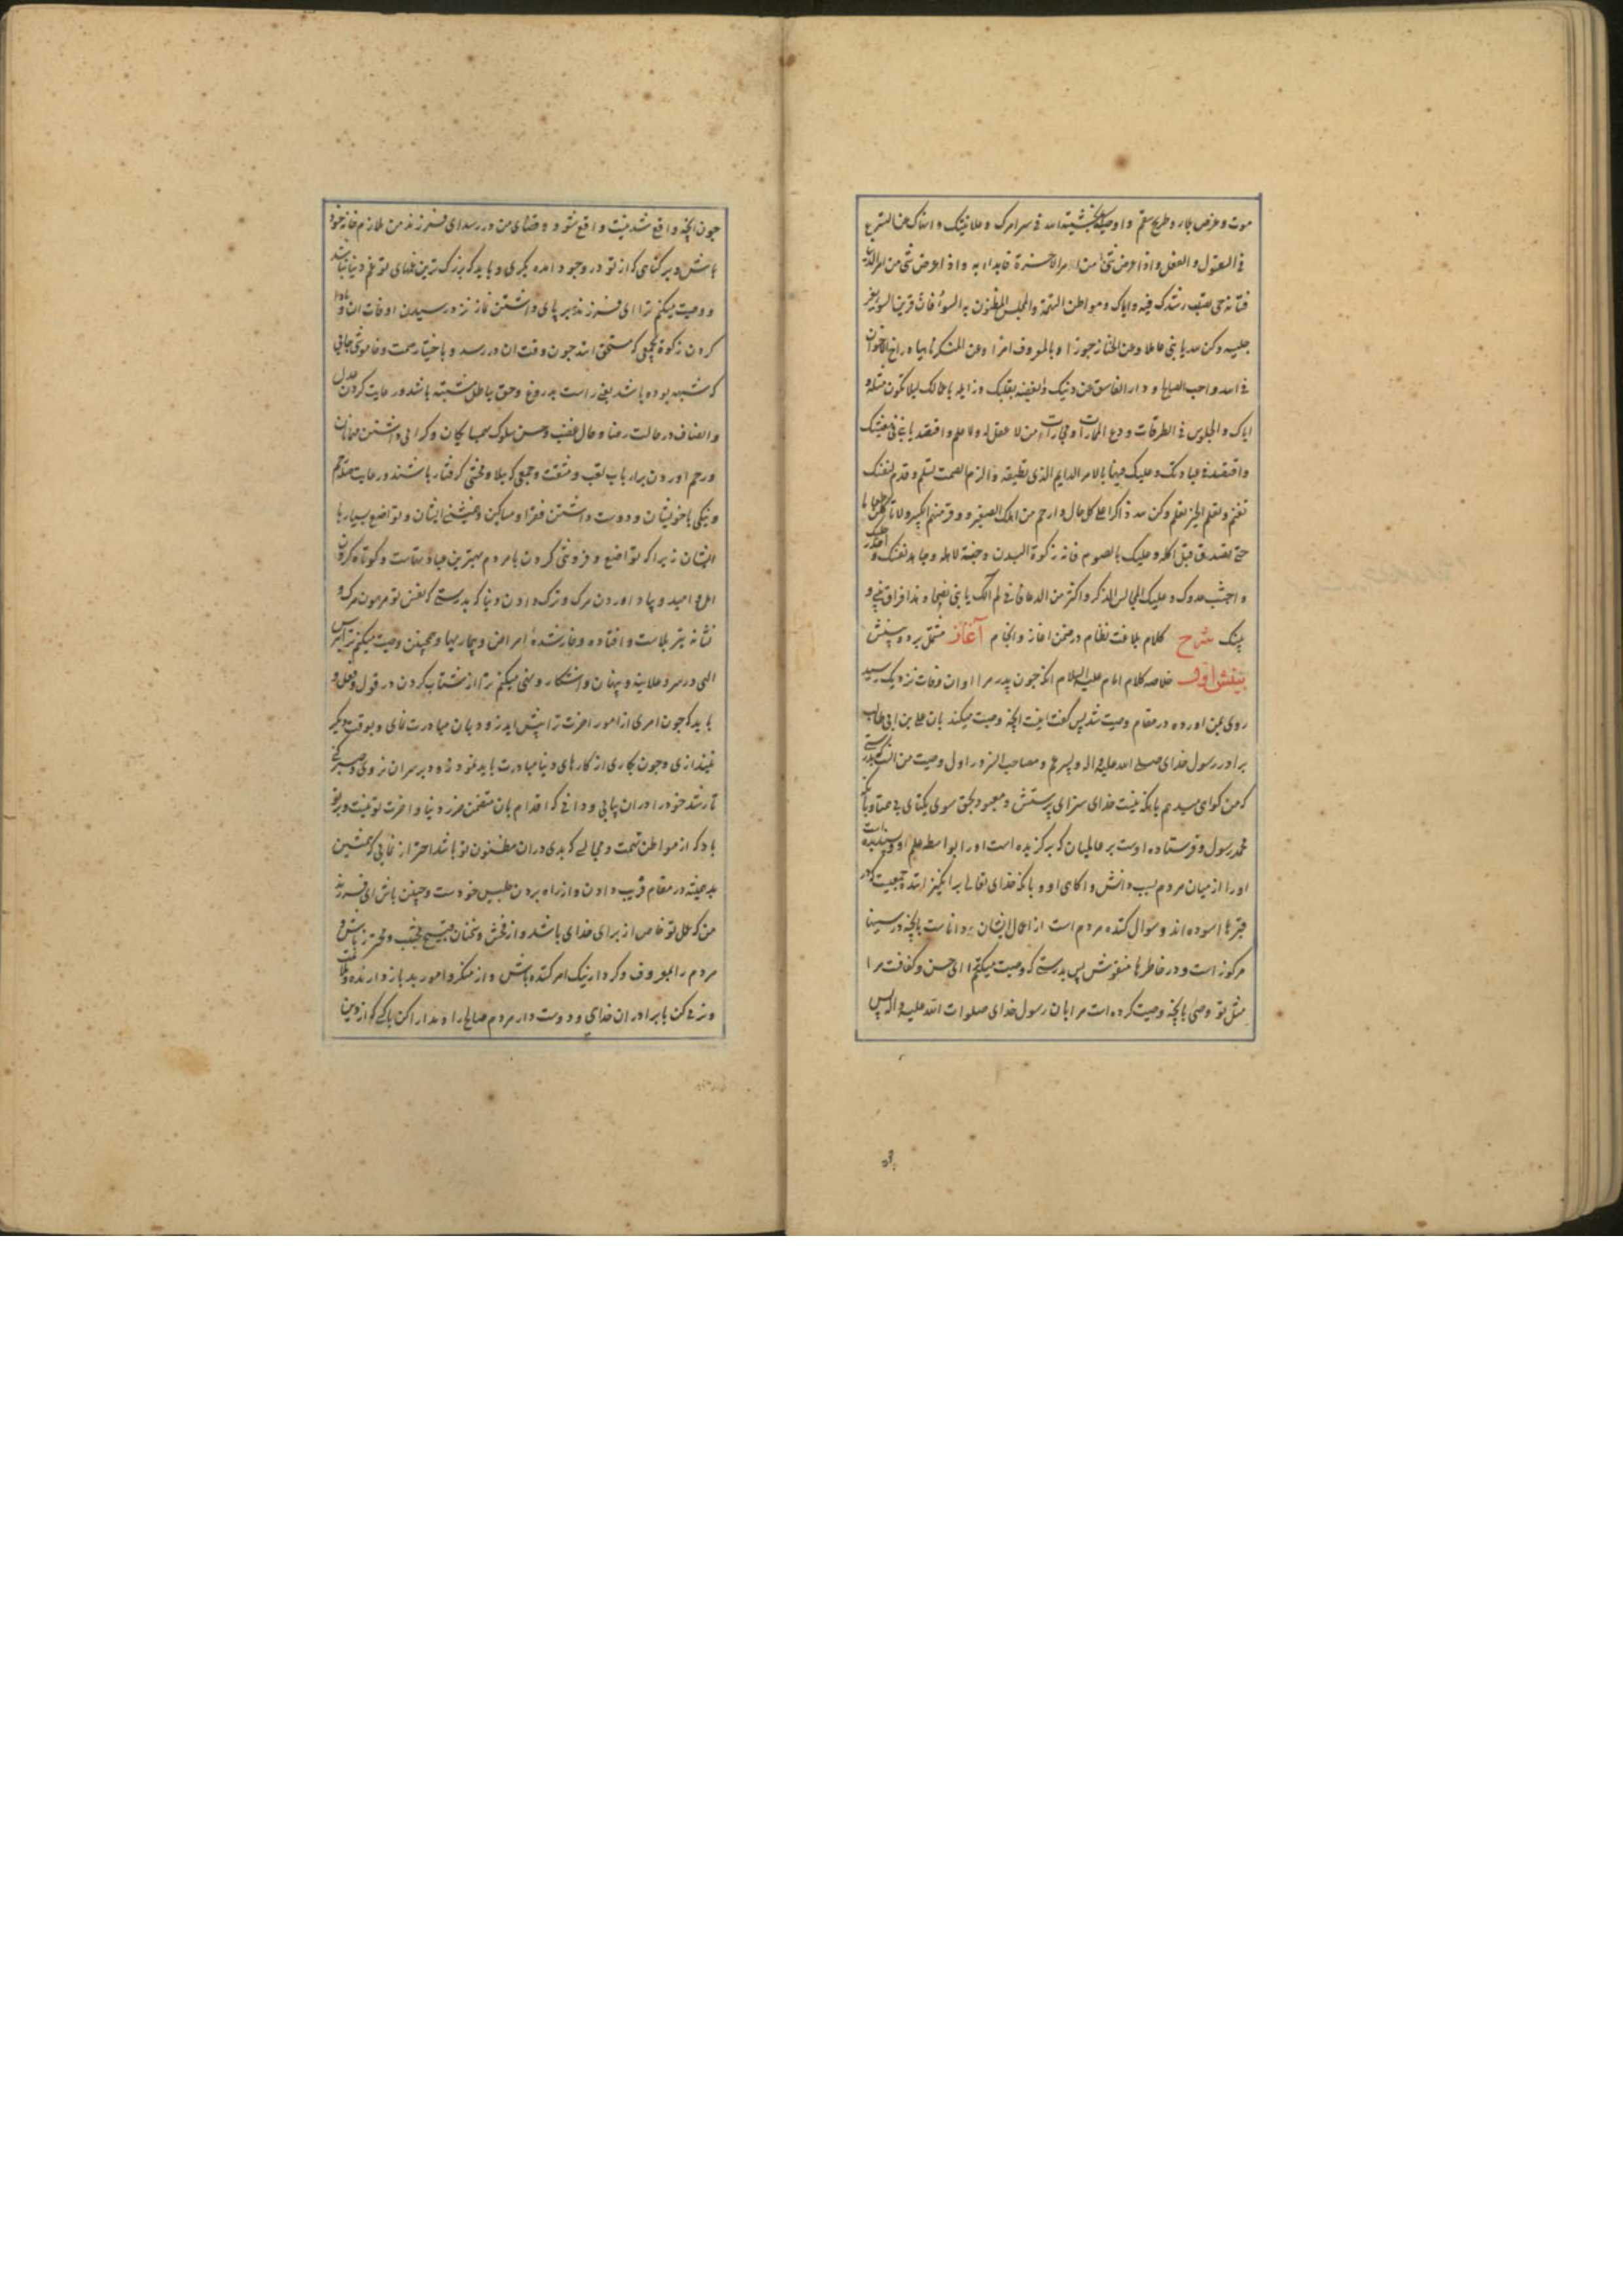 موت و غرض بلاء و طریح سقم و اوصیک بخشیة الله فی سر امرک و علانیتک و انهاک عن التسرع
فی القول و الفعل و اذا عرض شئ من امر الاخرة فابداء به و اذا عرض شئ من امر الدنیا
فتانه حتی تصیب رشدک فیه و ایاک و مواطن التهمة و المجلس المظنون به السوء فان قرین السوء یغر
جلیسه و کن لله یا بنی عاملا و عن الخنا زجورا و بالمعروف امرا و عن المنکر ناهیا و واخ الاخوان
فی الله و احب الصالح و دار الفاسق عن دینک و ابغضه بقلبک و زایله باعمالک لیلا تکون مثله و
ایاک و الجلوس فی الطرقات و دع المماراة و مجاراة من لا عقل له و لا علم و اقتصد یا بنی فی معیشتک
و اقتصد فی عبادتک و علیک فیها بالامر الدایم الذی تطیقه و الزم الصمت تسلم و قدم لنفسک
تغنم و تعلم الخیر تعلم و کن لله ذاکرا علی کل حال و ارحم من اهلک الصغیر و وقر منهم الکبیر و لا تاکلن طعاما
حتی تصدق قبل اکله و علیک بالصوم فانه زکوة البدن و جنة لاهله و جاهد نفسک و احذر جلیسک
و اجتنب عدوک و علیک بمجالس الذکر و اکثر من الدعا فانی لم الک یا بنی نصیحا و هذا فراق بینی و
بینک شرح کلام بلاغت نظام در ضمن اغاز و انجام آغاز مشتمل بر دو بینش
بینش اول خلاصه کلام امام علیه السلام انکه جون پدر مرا اوان وفات نزدیک رسید
روی بمن اورده در مقام وصیت شد پس گفت اینست انچه وصیت میکند بان علی بن ابی طالب
برادر رسول خدای صلی الله علیه و اله و پسر عم و مصاحب انسرور اول وصیت من انست که بدرستی
که من کواهی میدهم بانکه نیست خدای سزای پرستش و معبود بحق سوی یکتای بی همتا و بانکه
محمد رسول و فرستاده اوست بر عالمیان که برکزیده است او را بواسطه علم او و پسندیده است
او را از میان مردم بسبب دانش و اکاهی او و بانکه خدای تعالی برانکیزانند جمعیت که در
قبرها اسوده اند و سوال کننده مردم است از اعمال ایشان و داناست بانچه در سینها
مرکوز است و در خاطرها منقوش پس بدرستی که وصیت میکنم ای حسن و کفافت مرا
مثل تو وصی بانچه وصیت کرده است مرا بان رسول خدای صلوات الله علیه و اله پس
جون انچه واقع شدنیست واقع شود و قضای من در رسد ای فرزند من ملازم خانه خود
باش و بر کناهی که از تو در وجود امده بکری و باید که بزرک ترین غمهای تو غم دنیا نباشد
و وصیت میکنم ترا ای فرزند ببر پای داشتن نماز نزد رسیدن اوقات ان و ادا
کردن زکوة بجمعی که مستحق اند جون وقت ان در رسد و باختیار صمت و خاموشی جائی
که شبهه بوده باشد یعنی راست بدروغ و حق بباطل مشتبه باشد و رعایت کردن عدل
و انصاف در حالت رضا و حال غضب و حسن سلوک بهمسایکان و کرامی داشتن مهمانان
و رحم اوردن بر ارباب تعب و مشقت و جمعی که ببلا و محنتی کرفتار باشند و رعایت صله رحم
و نیکی با خویشان و دوست داشتن فقرا و مساکین و همنشینی ایشان و تواضع بسیار با
ایشان زیرا که تواضع و فروتنی کردن با مردم بهترین عبادتهاست و کوتاه کردن
امل و امید و بیاد اوردن مرک و ترک دادن دنیا که بدرستی که نفس تو مرهون مرک و
نشانه تیر بلاست و افتاده و خوار شده امراض و بیماریها و همچنین وصیت میکنم ترا بترس
الهی در سر و علانیه و پنهان و اشکار و نهی میکنم ترا از شتاب کردن در قول و فعل و
باید که جون امری از امور اخرت ترا پیش اید زود بان مبادرت نمای و بوقت دیکر
نیندازی و جون کاری از کارهای دنیا مبادرت باید نمود زود بر سر ان نروی و صبر کنی
تا رشد خود را در ان بیابی و دانی که اقدام بان متضمن ضرر دنیا و اخرت تو نیست و بر تو
باد که از مواطن تهمت و مجالسی که بدی در ان مظنون تو باشد احتراز نمایی که همنشین
بد همیشه در مقام فریب دادن و از راه بردن جلیس خود است و جنین باش ای فرزند
من که عمل تو خاص از برای خدای باشد و از فحش و سخنان قبیح مجتنب و محترز باش و
مردم را بمعروف و کردار نیک امر کننده باش و از منکر و امور بد باز دارنده و
برادری کن با برادران خدایی و دوست دار مردم صالح را و مدارا کن با کسی که از دین